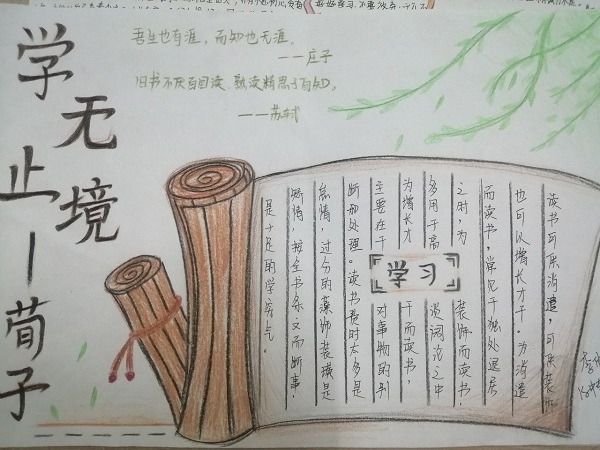 学无止境
—荀子
吾生也有涯，而知也无涯。
——庄子
旧书不厌百回读，熟读精思子自知。
——苏轼
学习
读书可以消遣，可以装饰
也可以增长才干。为消遣
而读书，常见于独处退居
之时，为装饰而读书，
多用于高谈阔论之中
为增长才干而读书，
主要在于对事物的判
断和处理。读书费时太多是
怠惰，过分的藻饰装璜是
矫情，按全书条文而断事，
是十足的学究气。